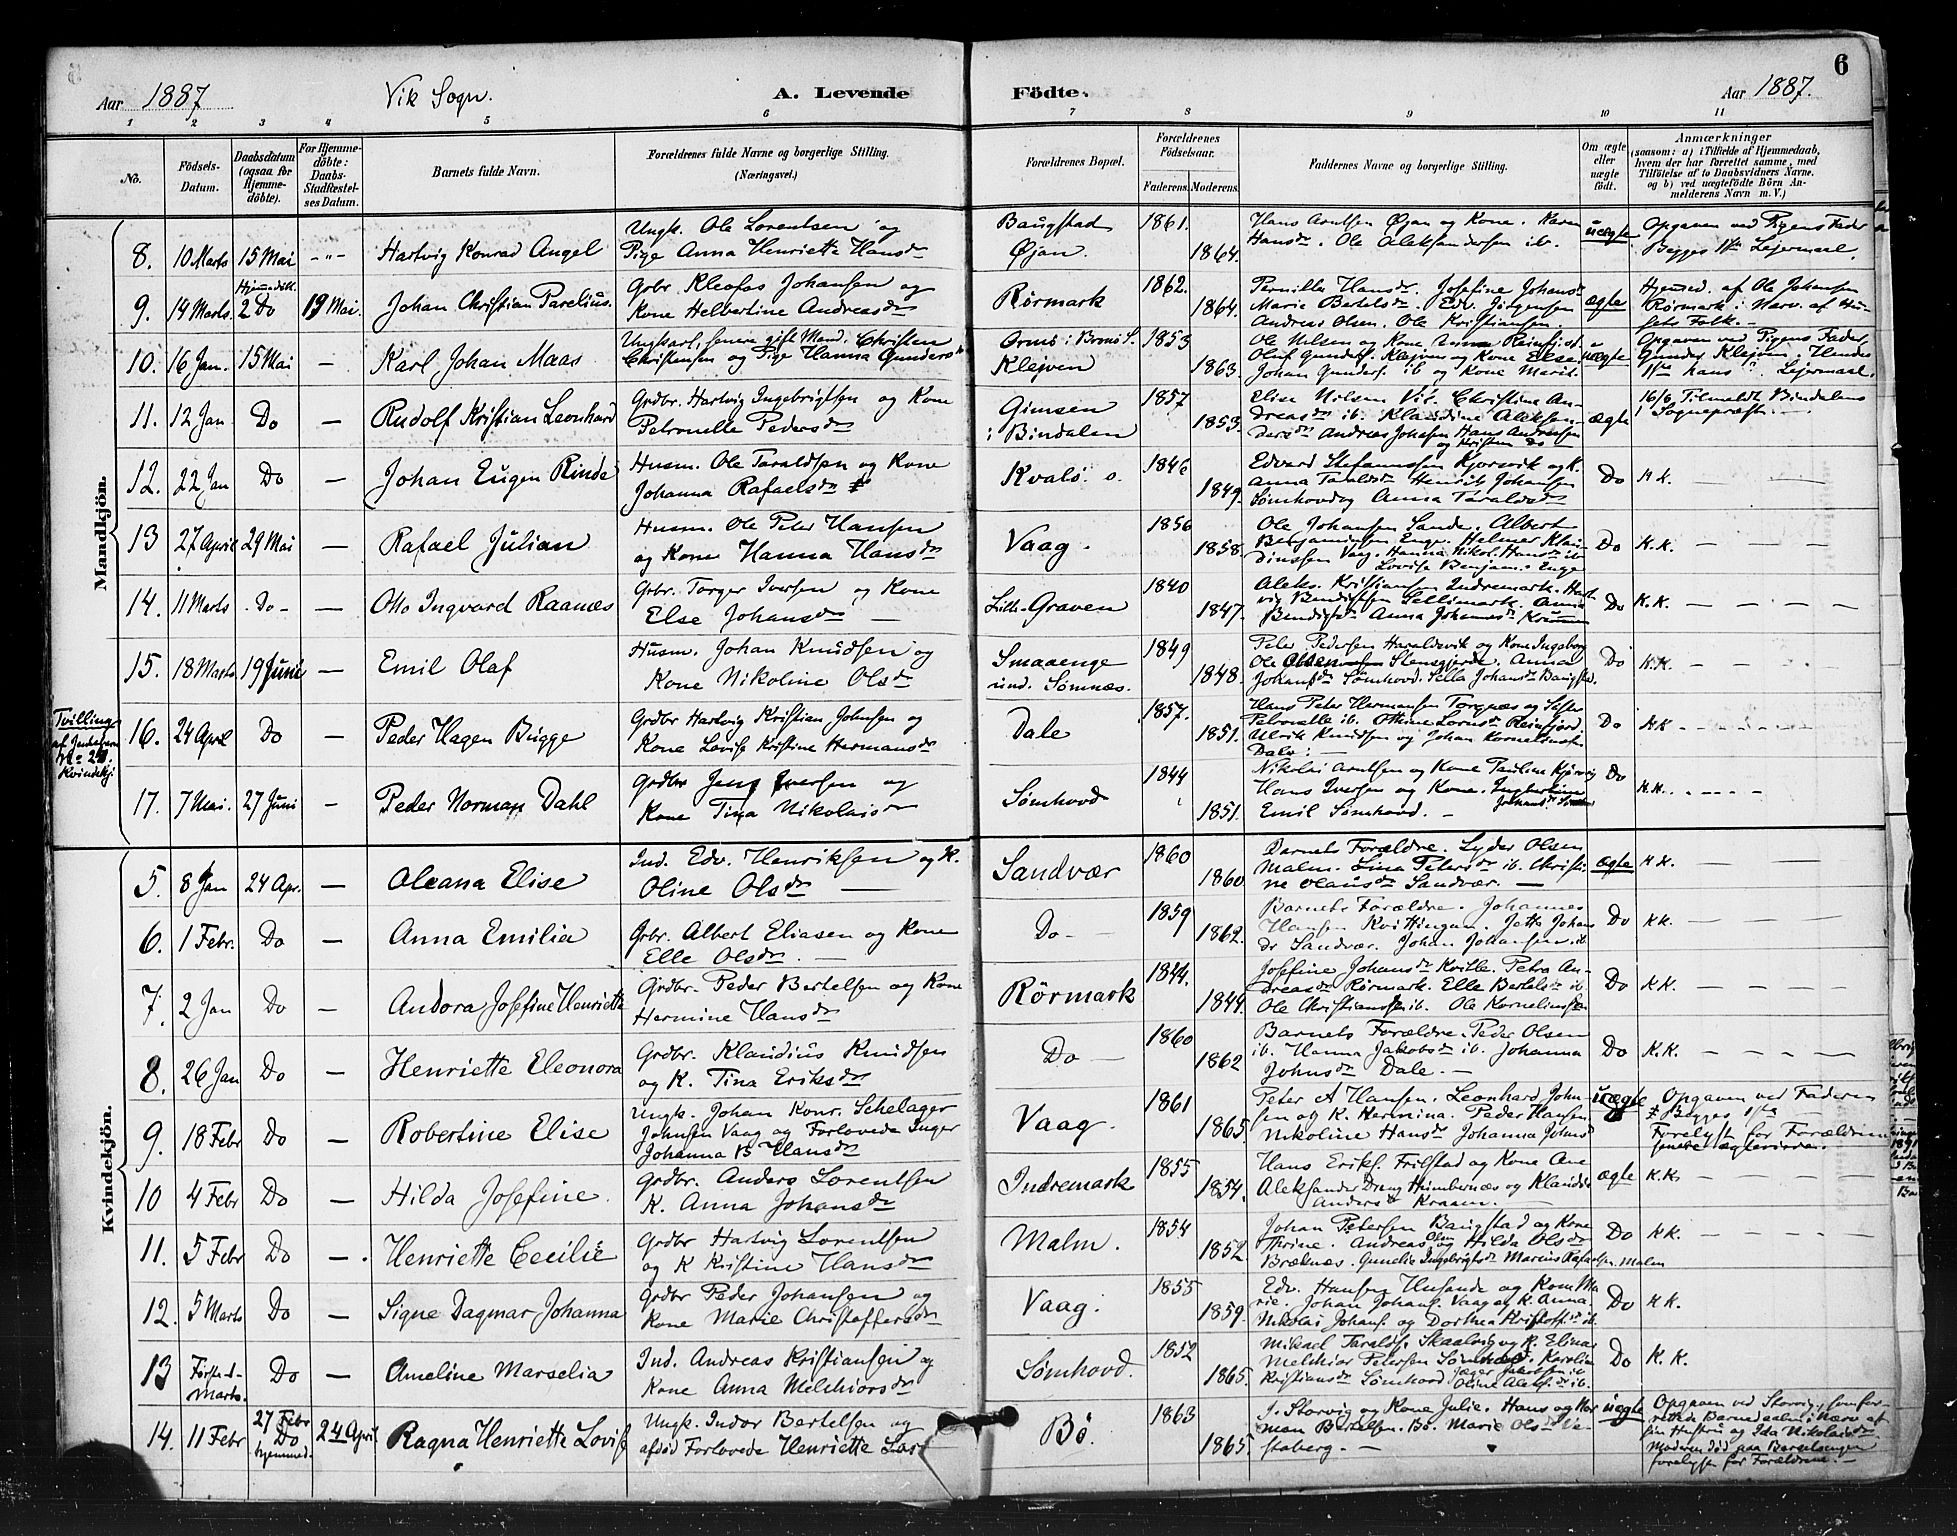 Aar 1887 Vik Sogn. A. Levende Födte. Aar 1887. 6
1 2 3 4 5 6 7 8 9 10 11
No.
Födsels-Datum.
Daabsdatum (ogsaa for Hjemme-döbte).
For Hjemme-döbte: Daabs-Stadfæstel-ses Datum.
Barnets fulde Navn.
Forældrenes fulde Navne og borgerlige Stilling. (Næringsvei.)
Forældrenes Bopæl.
Forældrenes Födselsaar.
Faderens. Moderens.
Faddernes Navne og borgerlige Stilling.
Om ægte eller uægte födt.
Anmærkninger
(saasom: a) i Tilfælde af Hjemmedaab,
hvem der har forrettet samme, med
Tilföielse af to Daabsvidners Navne,
og b) ved uægtefödte Börn An-
melderens Navn m. V.)
Mandkjön.
8. 10 Marts 15 Mai -"- Hartvig Konrad Angel
Ungk. Ole Lorentsen og
Pige Anna Henriette Hansdr
Baugstad
Øjan.
1861. 1864.
Hans Arntsen Øjan og Kone. Karen
Hansdr. Ole Aleksandersen ib.
uægte
Opgaven ved Pigens Fader
Begges 1ste Lejermaal.
9. 14 Marts. Hjemdøbt. 2 Do 19 Mai. Johan Christian Parelius.
Grbr. Kleofas Johansen og
Kone Helbertine Andreasdr
Rörmark
1862. 1864.
Pernille Hansdr. Josefine Johansdr
Marie Bertelsdr. Edv. Jörgensen
Andreas Olsen. Ole Kristiansen.
ægte
Hjemed. af Ole Johansen
Rörmark i Nærv. af Hu-
sets Folk. -
10. 16 Jan. 15 Mai - Karl Johan Maas
Ungkarl, senere gift Mand, Christen
Christensen og Pige Hanna Gundersdr
Klejven
1853 1863.
Ole Nilsen og Kone
Oluf Gunders. Klejven og Kone Else
Johan Gunders. ib og Kone Marit.
uægte
Opgaven ved Pigens Fader
Gunder Klejven. Hendes
1ste hans Lejermaal.
11. 12 Jan Do - Rudolf Kristian Leonhard
Grdbr. Hartvig Ingebrigtsen og Kone
Petronelle Pedersdr
Gimsen
i Bindalen
1857 1853.
Elise Nilsen Vik. Christine An-
dreasdr ib. Klaudine Aleksan-
dersdr Andreas Johansen Hans Andreasen
ægte
16/6 Tilmeldt Bindalens
Sognepræst. -
12. 22 Jan Do - Johan Eugen Rinde
Husm. Ole Taraldsen og Kone
Johanna Rafaelsdr
Kvalö.
1846 1849.
Edvard Stefanussen Kjorsvik og K.
Anna Taraldsdr Henrik Johansen
Sømhovd og Anna Taraldsdr
Do K.K. - -
13 27 April 29 Mai - Rafael Julian
Husm. Ole Peter Hansen
og Kone Hanna Hansdr
Vaag.
1856 1858.
Ole Johansen Sande. Albert
Benjaminsen Enge. Helmer Klau-
dinssen Vaag. Hanna Nikol. Hansdr ib
Lovise Benjam. Enge
Do K.K. - - -
14. 11 Marts Do - - Otto Ingvard Raanæs
Grbr. Torger Iversen og Kone
Else Johansdr -
Lille-Graven
1840 1847.
Aleks. Kristiansen Indremark. Hart-
vig Bendigtsen Sellimark. Anna
Bendigtsdr Anna Johannesdr
Do K.K. - - - -
15. 18 Marts 19 Juni - Emil Olaf
Husm. Johan Knudsen og
Kone Nikoline Olsdr
Smaaenge
und. Sömnæs.
1849 1848.
Peter Pedersen Haraldsvik og Kone Ingeborg
Ole Stensgjerde. Anna
Johansdr Sömhovd. Sella Johansdr Baugstad.
Do K.K. - - -
Tvilling
af
No 20.
Kvindekj.
16. 24 April Do - Peder Hagen Bugge
Grdbr Hartvig Kristian Johnsen og
Kone Lovise Kristine Hermansdr
Dale
1857. 1851.
Hans Peter Hermansen Torgnæs og Søster
Petronelle ib. Othine Lornsdr Reinfjord
Ulrik Knudsen og Johan Korneliussen
Dale. -
Do K.K
17. 7 Mai. 27 Juni - Peder Norman Dahl
Grdbr Jens Iversen og
Kone Tina Nikolaisdr
Sømhovd
1844 1851.
Nikolai Arntsen og Kone Paulina Kjörsvig
Hans Iversen og Kone. Ingbertine
Emil Sömhovd. -
Do K.K.
Kvindekjön.
5. 8 Jan 24 Apr. - Oleana Elise
Ind. Edv. Henriksen og K.
Oline Olsdr -
Sandvær
1860 1860
Barnets Forældre. Lyder Olsen
Malm. Lina Petersdr ib. Christi-
ne Olausdr Sandvær. -
ægte K.K. - -
6. 1 Febr. Do - Anna Emilia
Grbr. Albert Eliasen og Kone
Elle Olsdr. -
Do -
1859 1862.
Barnets Forældre. Johannes
Hansen Kvittingen. Jetta Johans
dr Sandvær. Johan Johansen. ib.
Do K.K. - - -
7. 2 Jan Do - Andora Josefine Henriette
Grdbr. Peder Bertelsen og Kone
Hermine Hansdr
Rörmark
1844. 1844.
Josefine Johansdr Kville. Petra An-
dreasdr Rørmark. Elle Bertelsdr ib
Ole Christianssen ib. Ole Korneliussen
Do K.K. - - - -
8. 26 Jan Do - Henriette Eleonora
Grdbr. Klaudius Knudsen
og K. Tina Eriksdr
Do -
1860 1862
Barnets Forældre. Peder Olsen
ib. Hanna Jakobsdr ib. Johanna
Johnsdr Dale. -
Do K.K. - - - -
9. 18 Febr Do - Robertine Elise
Ungk. Johan Konr. Schelager
Johnsen Vaag og Forlovede Inger
Johanna B. Hansdr
Vaag.
1861 1865
Peter A Hansen. Leonhard John-
sen og K. Hermina. Peder Hansen.
Nikoline Hansdr Johanna Johnsdr
uægte
Opgaven ved Faderen
Begges 1ste
Forelyst for Forældrene
10 4 Febr Do - Hilda Josefine.
Grdbr. Anders Lorentsen
K. Anna Johansdr
Indremark
1855 1854.
Hans Eriks. Frilstad og Kone Ane
Aleksander Dreng Humbernæs og Klaudine
ægte K.K. - - -
11. 5 Febr Do - Henriette Cecilie
Grdbr Hartvig Lorentsen
og K Kristine Hansdr
Malm.
1854 1852
Johan Petersen Baugstad og Kone
Thrine. Andreas Olsen og Hilda Olsdr
Bræknæs. Gunelie Ingebrigtsdr Marius Malm
Do K.K. - - - -
12. 5 Marts Do - Signe Dagmar Johanna
Grdbr Peder Johansen og
Kone Marie Christoffersdr
Vaag.
1855 1859.
Edv. Hansen Husande og Kone Ma-
rie. Johan Johans. Vaag og K. Anna.
Nikolai Johans. og Dorthea Kristoffsdr ib.
Do K.K.
13 Marts. Do - Ameline Marselia
Ind. Andreas Kristiansen og
Kone Anna Melchiorsdr
Sømhovd.
1852 1865.
Mikael Taralds. Skaalvig og K. Elina
Melchior Petersen Sömhovd. Karoline
Kristiansdr Sømhovd
Do K. K.
14. 11 Febr 27 Febr Do hjemmed. 24 April Ragna Henriette Lovise
Ungk. Indor Bertelsen og
afdöd Forlovede Henriette Lars
Bö.
1863 1865.
J. Storvig og Kone Julie. Hans og Nor-
man Bertelsen. Bö. Marie Olsdr Ve-
staberg. -
uægte
Opgaven ved Storvig, som for-
rettede Barnedaaben i Nærv. af
sin Hustru og Ida Nikolaisdr
Moderen död paa Barselsengen
forelyst for Forældrene. -